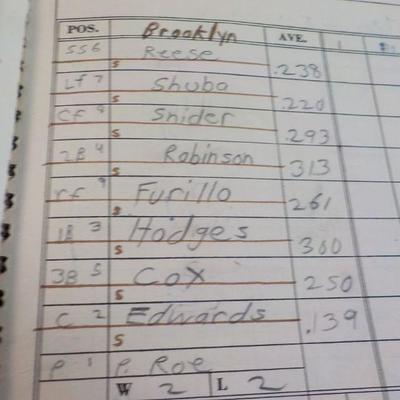 POS. Brooklyn AVE.
SS 6 Reese .238
S
Lf 7 Shuba .220
S
Cf 8 Snider .293
S
2B 4 Robinson 313
S
rf 9 Furillo 261
S
1B 3 Hodges 300
S
3B 5 Cox 250
S
C 2 Edwards .139
S
P 1 P. Roe
W 2 L 2